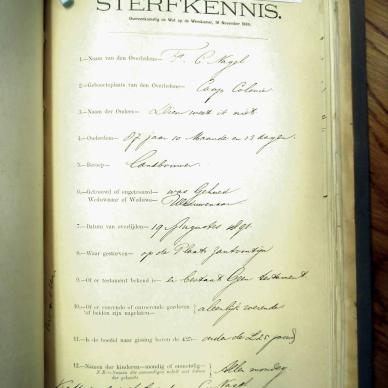 STERFKENNIS.
Overeenkomstig de Wet op de Weeskamer, 18 November 1886.
1.—Naam van den Overledene— C. Nagel
2.—Geboorteplaats van den Overledene— Caap Colonie
3.—Naam der Ouders— weet ik niet
4.—Ouderdom— 87 jaar 10 Maande en 13 dagen
5.—Beroep— Landbouwer
6.—Getrouwd of ongetrouwd— was Gehuwd
Weduwnaar of Weduwe— Weduwenaar
7.—Datum van overlijden— 19 Augustus 1891
8.—Waar gestorven— op de Plaats
9.—Of er testament bekend is— er bestaat Geen testament
10.—Of er roerende of onroerende goederen
of beiden zijn nagelaten— alleenlijk roerende
11.—Is de boedel naar gissing boven de £ onder de £25 pond
12.—Namen der kinderen—mondig of onmondig— Allen mondig
N.B.—Namen der
C. Nagel